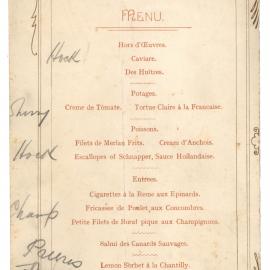 MENU.
Hors d'Œuvres.
Hock
Caviare.
Des Huîtres.
Potages.
Sherry
Creme de Tomate. Tortue Claire à la Francaise.
Poissons.
Hock
Filets de Merlan Frits. Cream d'Anchois.
Escallopes of Schnapper, Sauce Hollandaise.
Entrées.
Cigarettes à la Reine aux Epinards.
Champ
Fricasée de Poulet aux Concombres.
Petite Filets de Bœuf pique aux Champignons.
Salmi des Canards Sauvages.
Lemon Sorbet à la Chantilly.